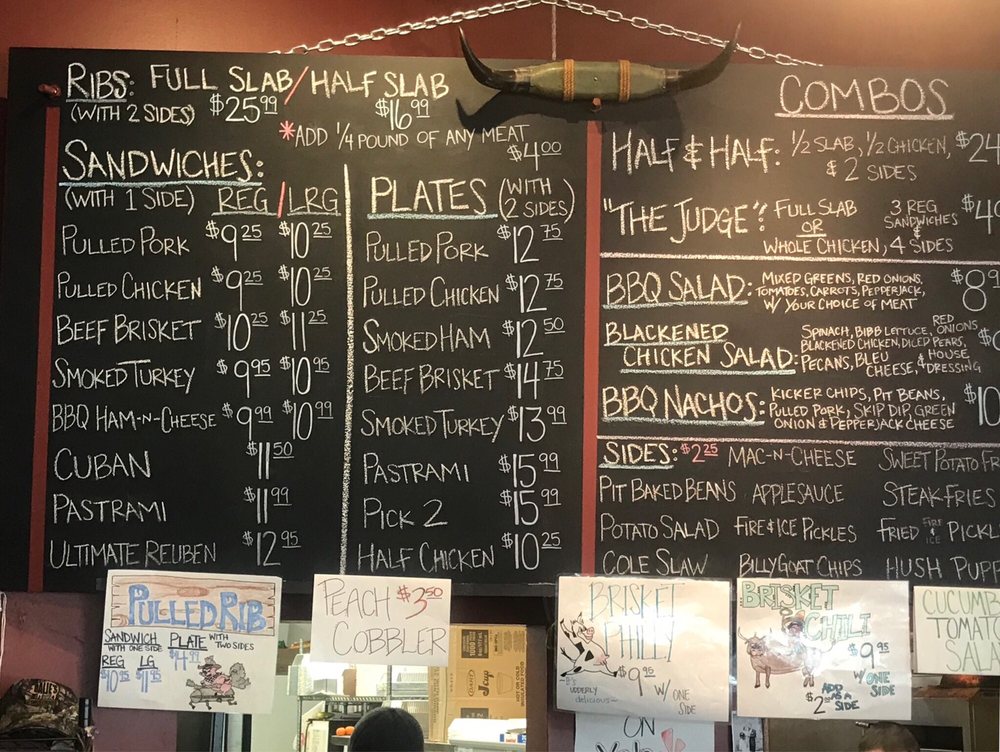 RIBS: FULL SLAB/HALF SLAB
(WITH 2 SIDES) $25.99 $16.99
*ADD 1/4 POUND OF ANY MEAT
$4.00
SANDWICHES:
(WITH 1 SIDE) REG/LRG
PULLED PORK $9.25 $10.25
PULLED CHICKEN $9.25 $10.25
BEEF BRISKET $10.25 $11.25
SMOKED TURKEY $9.95 $10.95
BBQ HAM-N-CHEESE $9.99 $10.99
CUBAN $11.50
PASTRAMI $11.99
ULTIMATE REUBEN $12.95
PLATES (WITH 2 SIDES)
PULLED PORK $12.75
PULLED CHICKEN $12.75
SMOKED HAM $12.50
BEEF BRISKET $14.75
SMOKED TURKEY $13.99
PASTRAMI $15.99
PICK 2 $15.99
HALF CHICKEN $10.25
COMBOS
HALF & HALF: 1/2 SLAB, 1/2 CHICKEN, $24
& 2 SIDES
"THE JUDGE": FULL SLAB
OR
WHOLE CHICKEN, 4 SIDES
3 REG
SANDWICHES
&
BBQ SALAD: MIXED GREENS, RED ONIONS, $8.9
TOMATOES, CARROTS, PEPPERJACK,
W/ YOUR CHOICE OF MEAT
BLACKENED
CHICKEN SALAD:
SPINACH, BIBB LETTUCE, RED ONIONS
BLACKENED CHICKEN, DICED PEARS,
PECANS, BLEU CHEESE, & HOUSE DRESSING
BBQ NACHOS: KICKER CHIPS, PIT BEANS, $10
PULLED PORK, SKIP DIP, GREEN
ONION & PEPPERJACK CHEESE
SIDES: $2.25 MAC-N-CHEESE SWEET POTATO FR
PIT BAKED BEANS APPLESAUCE STEAK FRIES
POTATO SALAD FIRE & ICE PICKLES FRIED FIRE & ICE PICKL
COLE SLAW BILLY GOAT CHIPS HUSH PUPP
PULLED RIB
SANDWICH WITH ONE SIDE
REG LG
$10.95 $11.95
PLATE WITH TWO SIDES
PEACH $3.50
COBBLER
BRISKET
PHILLY
$9.95 W/ ONE SIDE
It's
udderly
delicious~
BRISKET
CHILI
$9.95
W/ ONE SIDE
ADD AS A SIDE
CUCUMB
TOMATO
SALA
ON